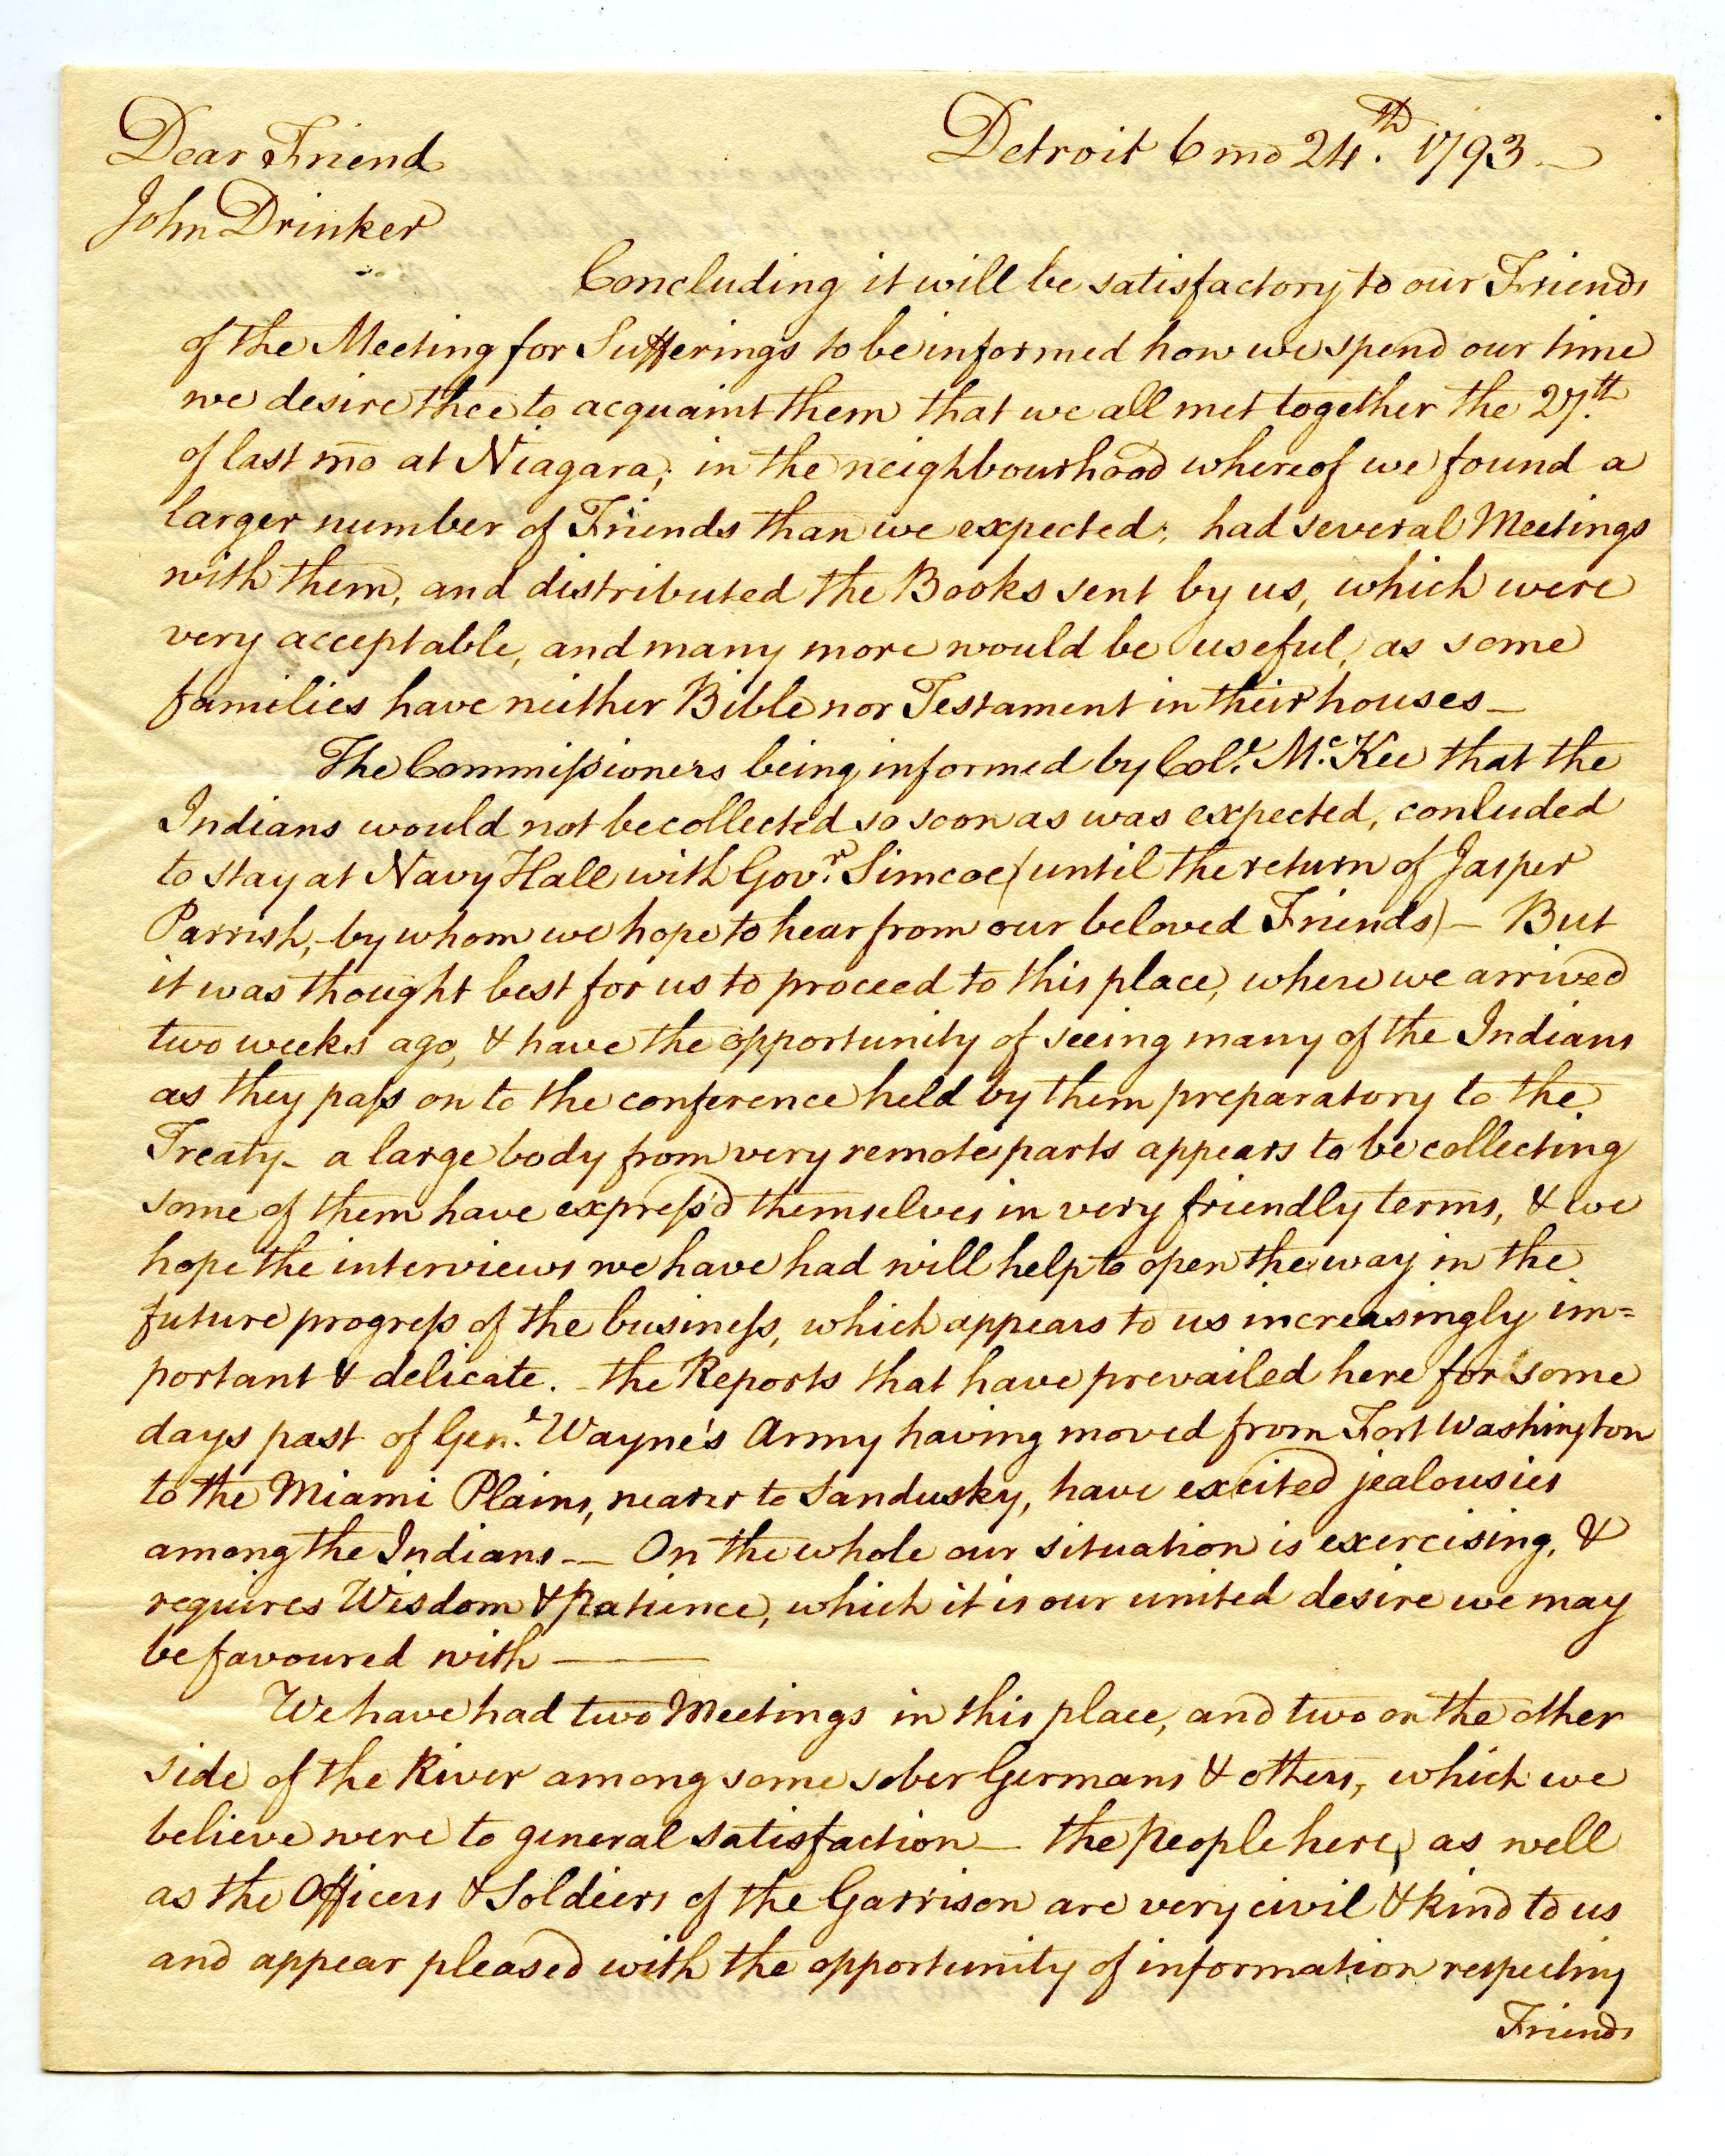 Detroit 6 mo 24.th 1793 —
Dear Friend
John Drinker
Concluding it will be satisfactory to our Friends
of the Meeting for Sufferings to be informed how we spend our time
we desire thee to acquaint them that we all met together the 27.th
of last mo at Niagara; in the neighbourhood whereof we found a
larger number of Friends than we expected; had several Meetings
with them, and distributed the Books sent by us, which were
very acceptable, and many more would be useful, as some
families have neither Bible nor Testament in their houses —
The Commissioners being informed by Col.l Mc.Kee that the
Indians would not be collected so soon as was expected, conluded
to stay at Navy Hall with Gov.r Simcoe (until the return of Jasper
Parrish, - by whom we hope to hear from our beloved Friends) — But
it was thought best for us to proceed to this place, where we arrived
two weeks ago, & have the opportunity of seeing many of the Indians
as they pass on to the conference held by them preparatory to the
Treaty - a large body from very remote parts appears to be collecting
some of them have express'd themselves in very friendly terms, & we
hope the interviews we have had will help to open the way in the
future progress of the business, which appears to us increasingly im=
portant & delicate. - the Reports that have prevailed here for some
days past of Gen.l Wayne's Army having moved from Fort Washington
to the Miami Plains, nearer to Sandusky, have excited jealousies
among the Indians — On the whole our situation is exercising, &
requires Wisdom & Patience, which it is our united desire we may
be favoured with ———
We have had two Meetings in this place, and two on the other
side of the River among some sober Germans & others, which we
believe were to general satisfaction — the People here, as well
as the Officers & Soldiers of the Garrison are very civil & kind to us
and appear pleased with the opportunity of information respecting
Friends